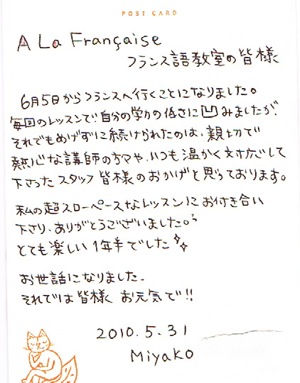 POST CARD
A La Française
フランス語教室の皆様
6月5日からフランスへ行くことになりました。
毎回のレッスンで自分の学力の低さに凹みましたが、
それでもめげずに続けられたのは、親切で
熱心な講師の方々や、いつも温かく対応して
下さったスタッフ皆様のおかげと思っております。
私の超スローペースなレッスンにお付き合い
下さり、ありがとうございました。
とても楽しい1年半でした
お世話になりました。
それでは皆様 お元気で!!
2010.5.31
Miyako